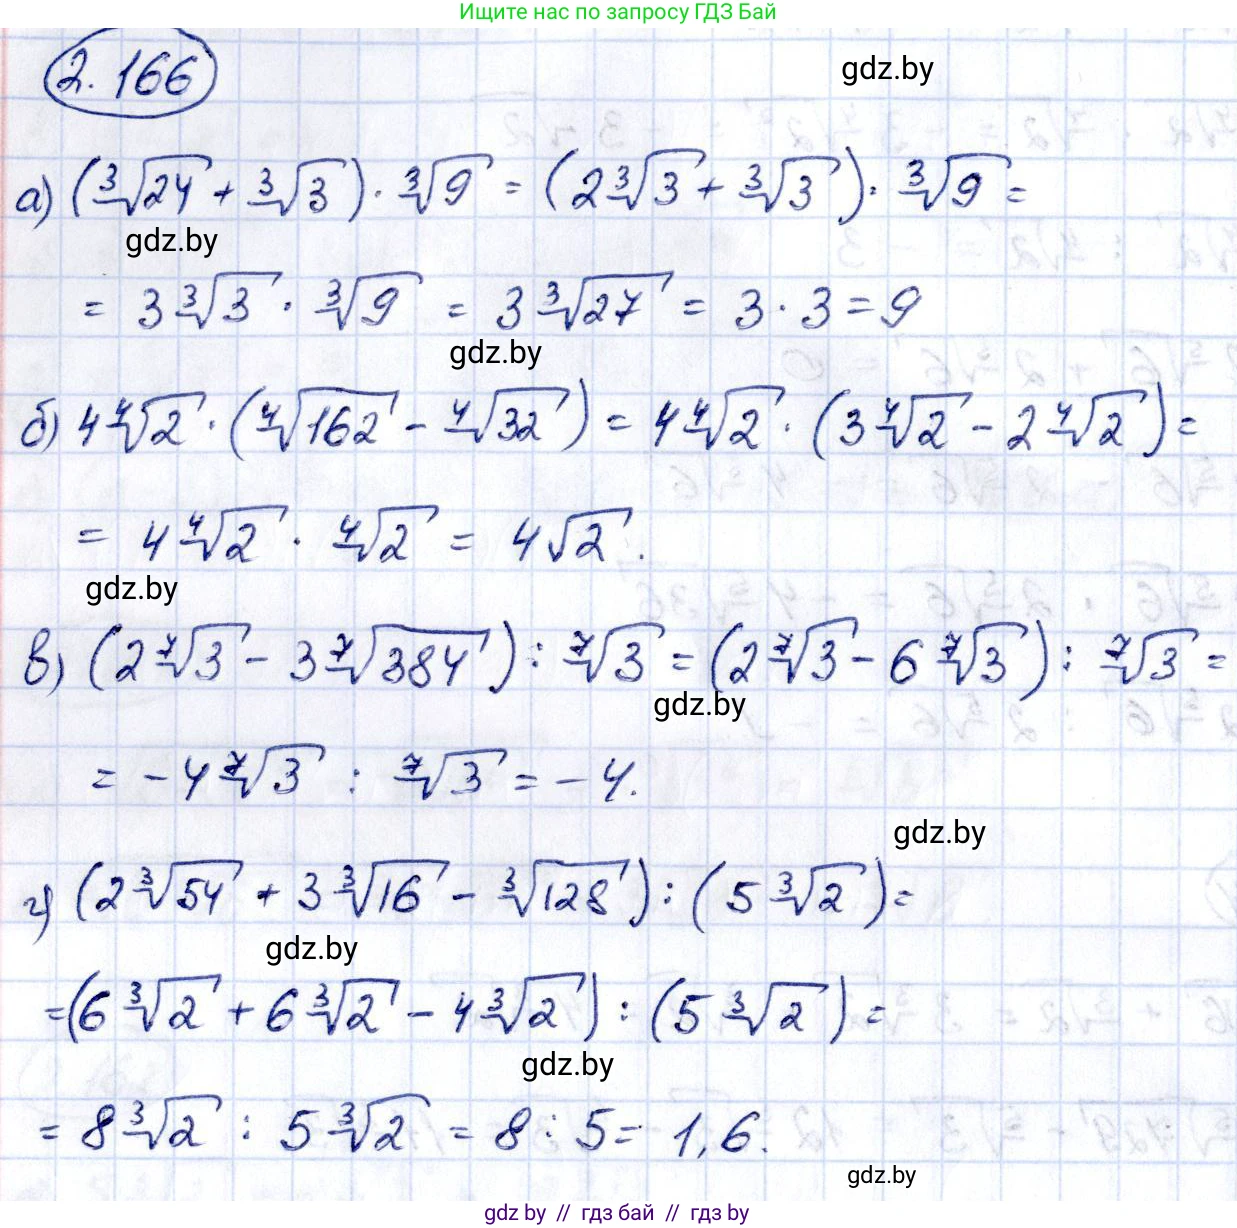 Ищите нас по запросу ГДЗ Бай
2.166
gdz.by
а) (∛24 + ∛3) · ∛9 = (2∛3 + ∛3) · ∛9 =
gdz.by
= 3∛3 · ∛9 = 3∛27 = 3 · 3 = 9
gdz.by
б) 4∜2 · (∜162 - ∜32) = 4∜2 · (3∜2 - 2∜2) =
= 4∜2 · ∜2 = 4√2.
gdz.by
в) (2⁷√3 - 3⁷√384) : ⁷√3 = (2⁷√3 - 6⁷√3) : ⁷√3 =
gdz.by
= -4⁷√3 : ⁷√3 = -4.
gdz.by
г) (2∛54 + 3∛16 - ∛128) : (5∛2) =
gdz.by
= (6∛2 + 6∛2 - 4∛2) : (5∛2) =
gdz.by
= 8∛2 : 5∛2 = 8 : 5 = 1,6.
gdz.by
gdz by // гдз бай // gdz by